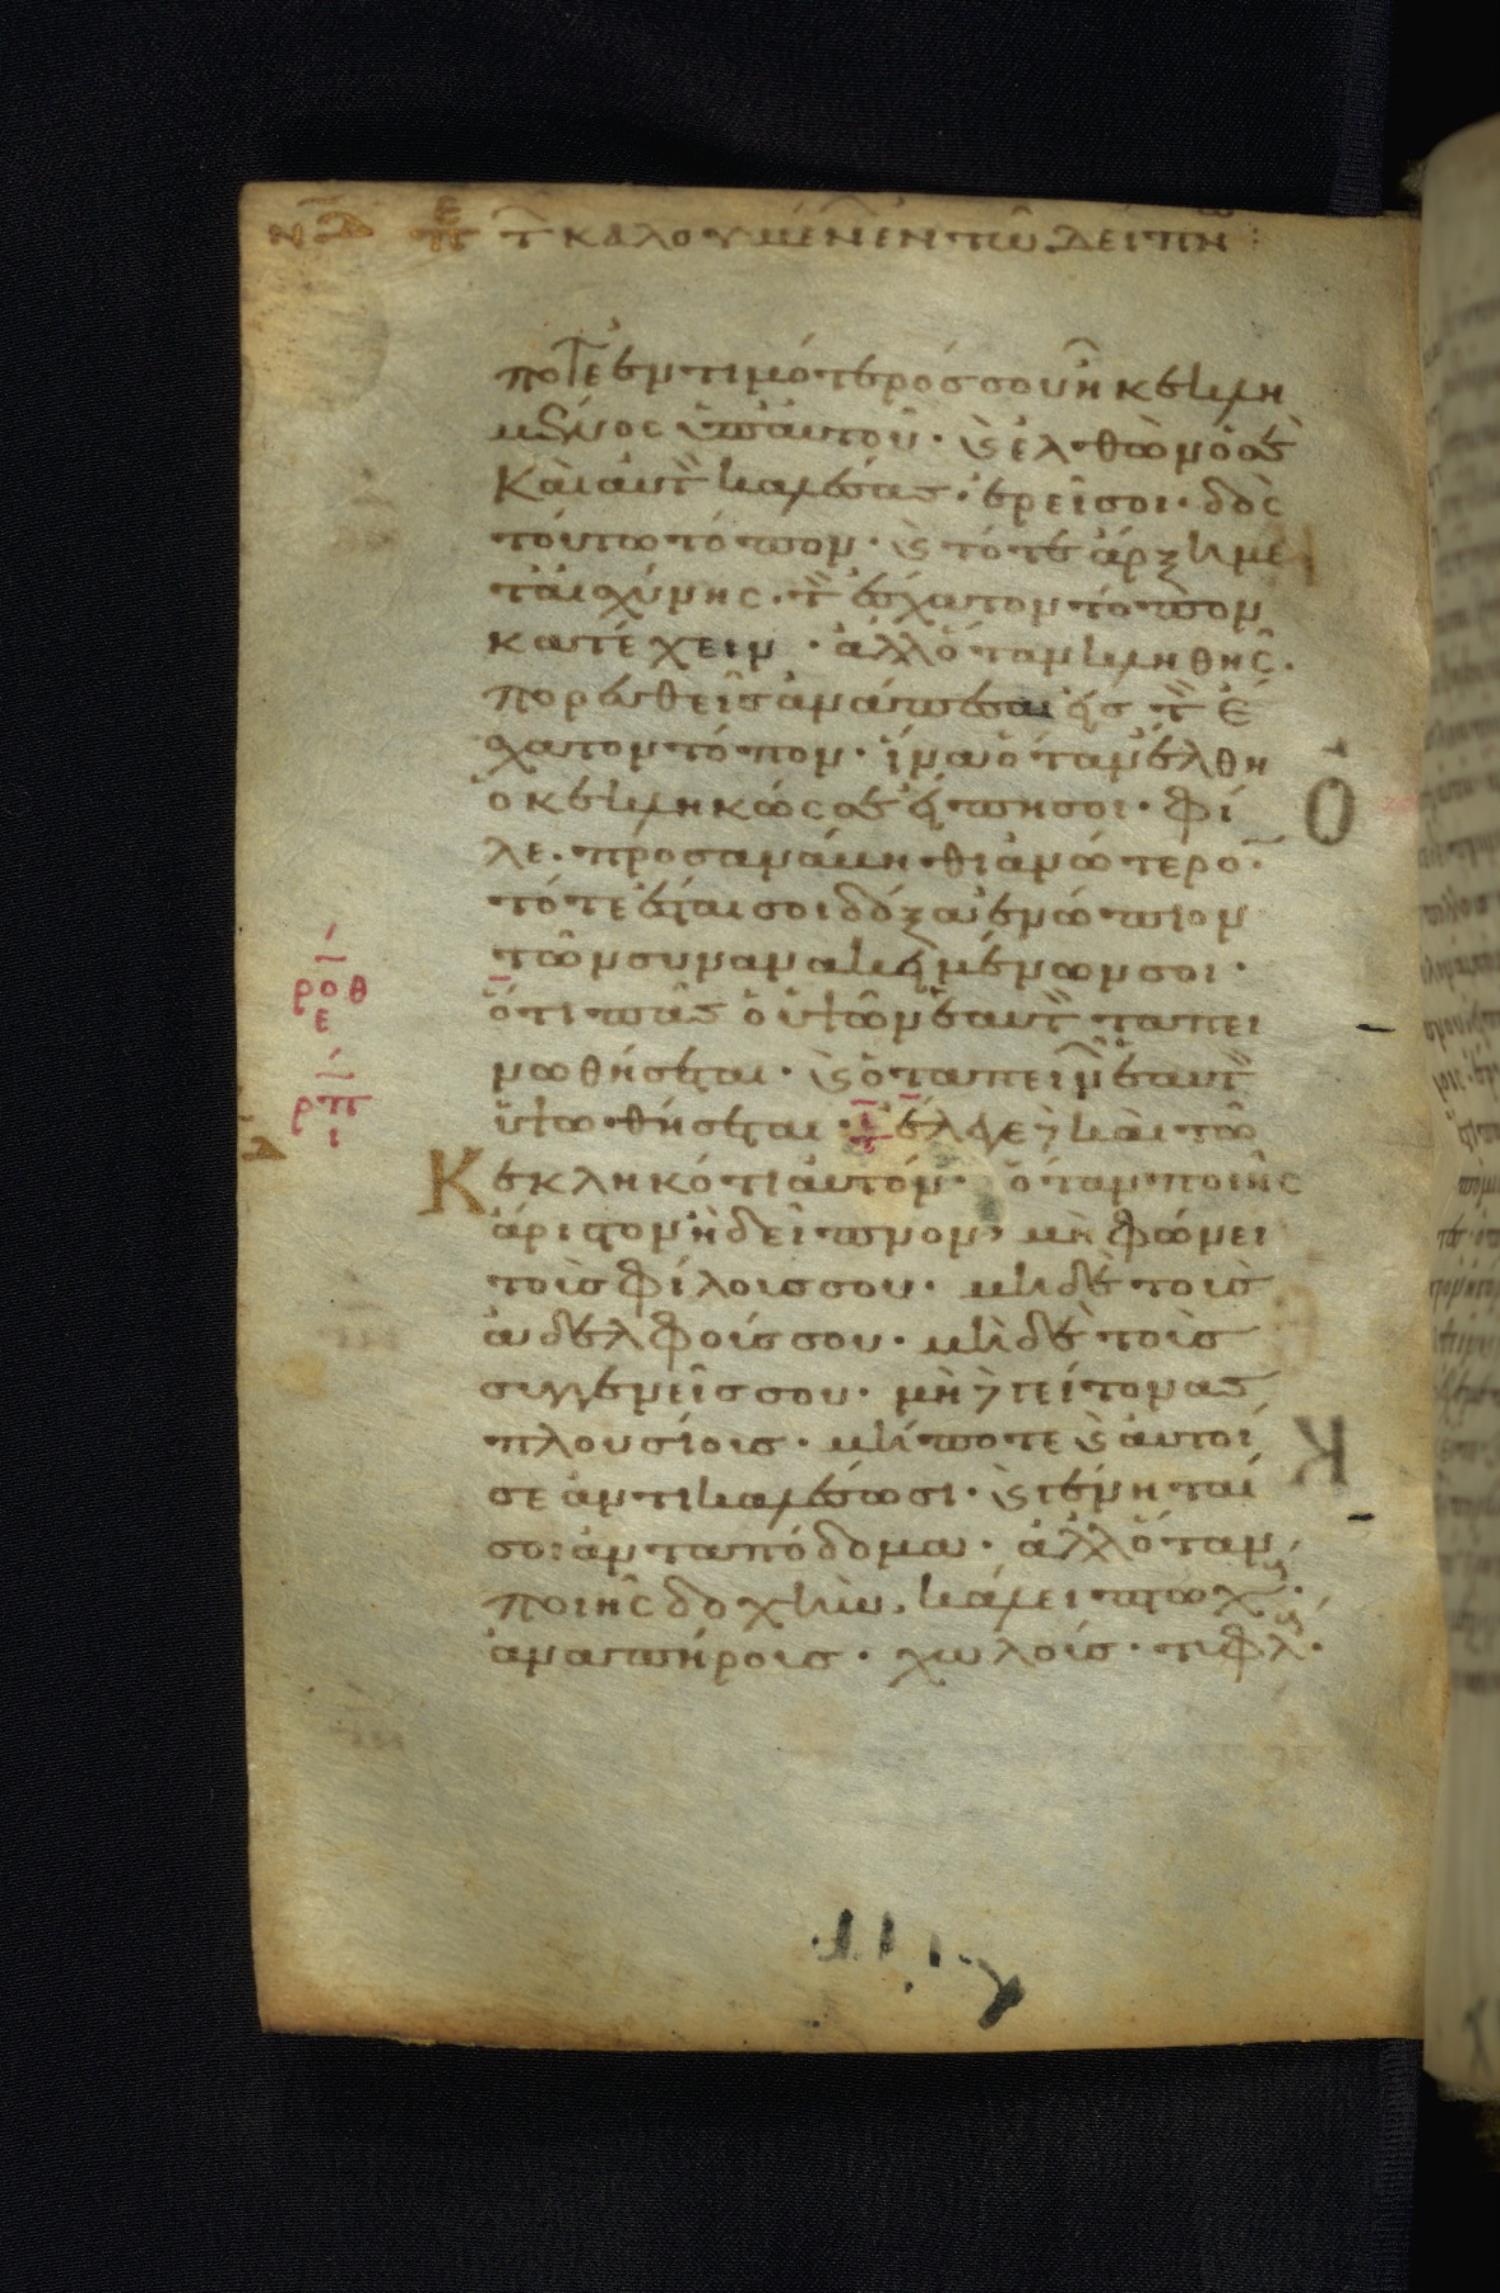 νδ πε τ̑ καλουμέν ἐν τῶ δείπν :
ποτε ἐντιμότερός σου ῆ κεκλη
μένος ὑπ' ἀυτοῦ · ϗ ἐλθὼν ὁ σὲ
Καὶ ἀυτ̏ καλέσας · ἐρεῖ σοι · δὸς
τούτω τόπον · ϗ τότε ἄρξη με
τ' ἀισχύνης · τ̏ ἔσχατον τόπον
κατέχειν · ἀλλ' ὅταν κληθῆς ·
πορευθεὶς ἀνάπεσαι εἰς τ̏ ἔ
σχατον τόπον · ἵνα ὅταν ἔλθη
ὁ κεκληκώς σε εἴπη σοι · φί
λε · προσανάβηθι ἀνώτερο̄ ·
τότε ἔσται σοι δόξα ἐνώπιον
τῶν συνανακειμένων σοι ·
ὅτι πᾶς ὁ ὑψῶν ἑαυτ̏ ταπει
νωθήσεται · ϗ ὁ ταπειν̑ ἑαυτ̏
ὑψωθήσεται · ἔλεγε δὲ καὶ τῶ
Κεκληκότι ἀυτόν · ὅταν ποιῆς
ἄριστον ἢ δεῖπνον, μὴ φώνει
τοὺς φίλους σου · μηδὲ τοὺς
ἀδελφούς σου · μηδὲ τοὺς
συγγενεῖς σου · μὴ δὲ γείτονας
πλουσίους · μήποτε ϗ ἀυτοί
σε ἀντικαλέσωσι · ϗ γένηταί
σοι ἀνταπόδομα · ἀλλ' ὅταν
ποιῆς δοχὴν, κάλει πτωχ ·
ἀναπήρους · χωλούς · τυφλ ·
ροθ
ε
ρπ
ι